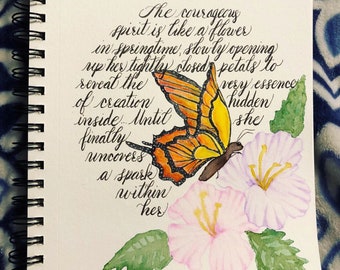 The courageous
spirit is like a flower
in springtime, slowly opening
up her tightly closed petals to
reveal the very essence
of creation hidden
inside. Until she
finally
uncovers
a spark
within
her